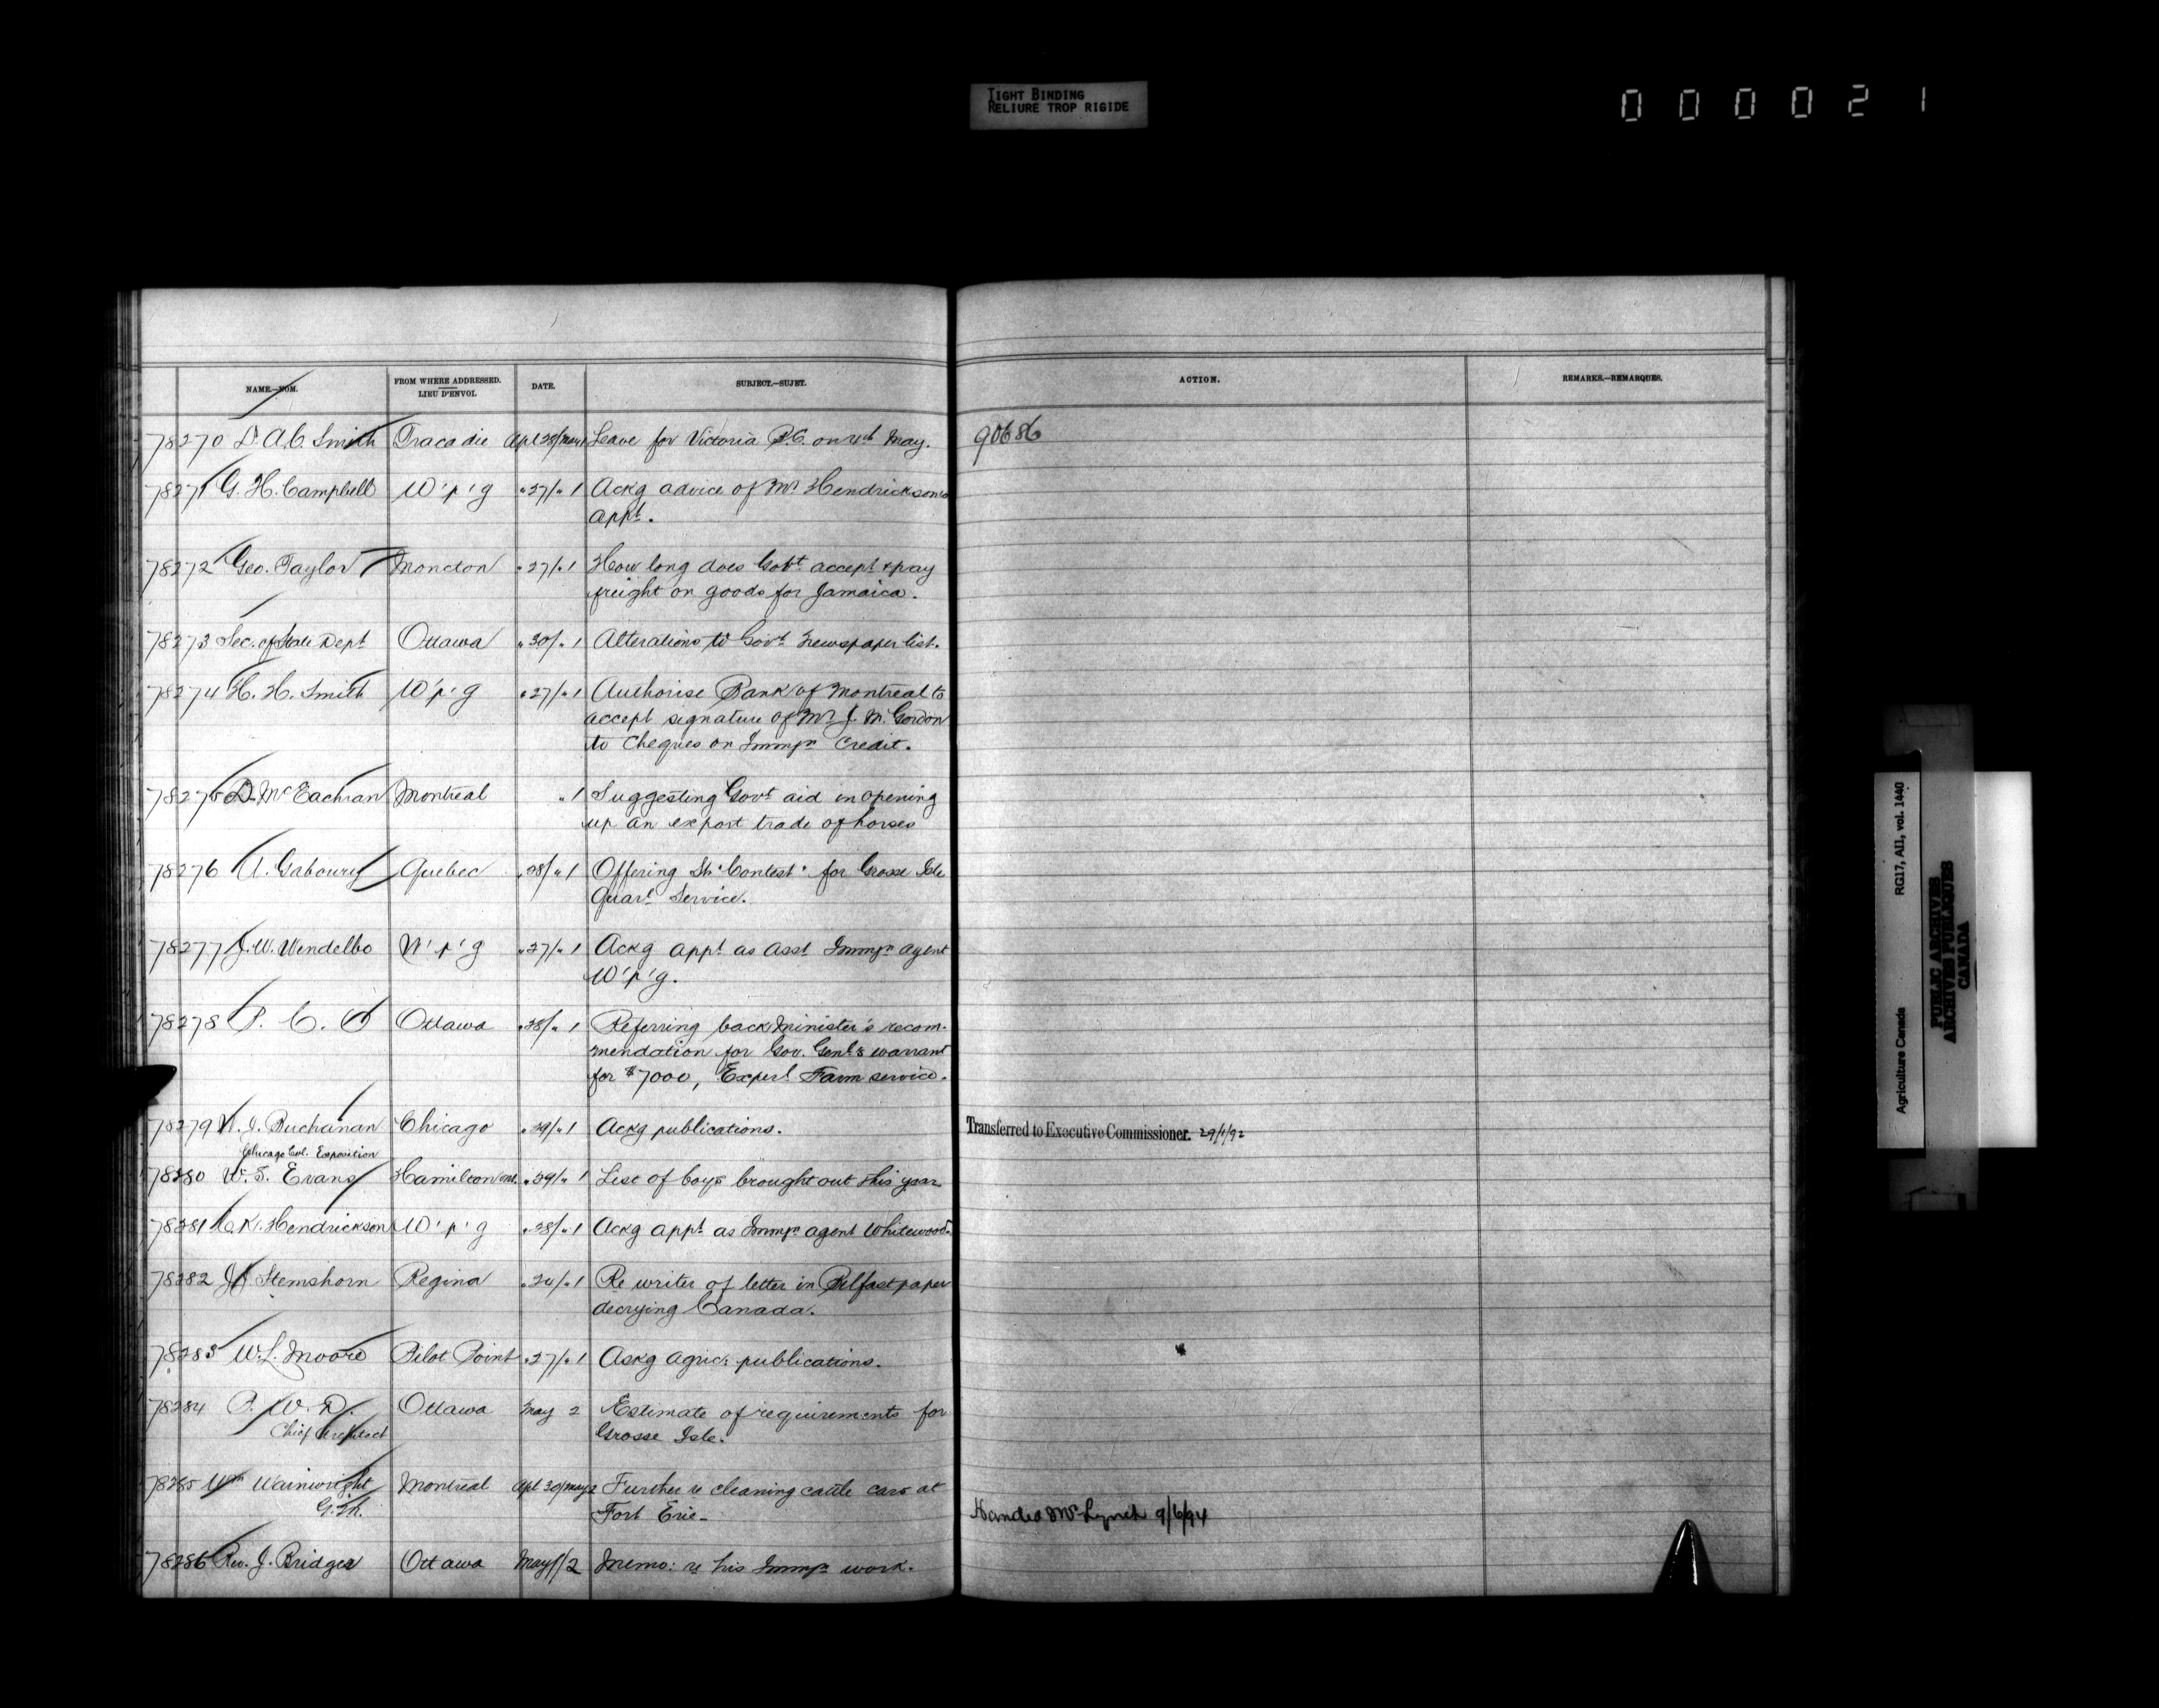 TIGHT BINDING
RELIURE TROP RIGIDE
000021
NAME.—NOM.
FROM WHERE ADDRESSED.
LIEU D'ENVOI.
DATE.
SUBJECT.—SUJET.
ACTION.
REMARKS.—REMARQUES.
78270 Dr A.C. Smith Tracadie Apl 28/May 1 Leave for Victoria B.C. on 4th May. 90686
78271 G. H. Campbell W'p'g " 27/" 1 Ackg advice of Mr Hendrickson's
appt.
78272 Geo. Taylor Moncton " 27/" 1 How long does Govt accept & pay
freight on goods for Jamaica.
78273 Sec. of State Dept Ottawa " 30/" 1 Alterations to Govt newspaper list.
78274 H. H. Smith W'p'g " 27/" 1 Authorise Bank of Montreal to
accept signature of Mr J. M. Gordon
to cheques on Immgn Credit.
78275 D. McEachran Montreal " 1 Suggesting Govt aid in opening
up an export trade of horses
78276 A. Gaboury Quebec " 28/" 1 Offering Str "Contest" for Grosse Isle
Quart Service.
78277 J. W. Wendelbo W'p'g " 27/" 1 Ackg appt as Asst Immgn agent
W'p'g.
78278 P. C. O Ottawa " 28/" 1 Referring back Minister's recom-
mendation for Gov. Genl's warrant
for $7000, Experl Farm service.
78279 W. I. Buchanan Chicago " 29/" 1 Ackg publications. Transferred to Executive Commissioner. 29/1/92
Chicago Col. Exposition
78280 W. S. Evans Hamilton Ont. " 29/" 1 List of boys brought out this year
78281 C. K. Hendrickson W'p'g " 28/" 1 Ackg appt as Immgn agent Whitewood.
78282 Stemshorn Regina " 24/" 1 Re writer of letter in Belfast paper
decrying Canada.
78283 W. L. Moore Pilot Point " 27/" 1 Askg agric: publications.
78284 P. W. D. Ottawa May 2 Estimate of requirements for
Chief Architect Grosse Isle.
78285 Wm Wainwright Montreal Apl 30/May 2 Further re cleaning cattle cars at
G.T.R. Fort Erie— Handed Mr Lynch 9/6/94
78286 Rev. J. Bridger Ottawa May 1/2 Memo: re his Immgn work.
Agriculture Canada RG17, AII, vol. 1440
PUBLIC ARCHIVES
ARCHIVES PUBLIQUES
CANADA